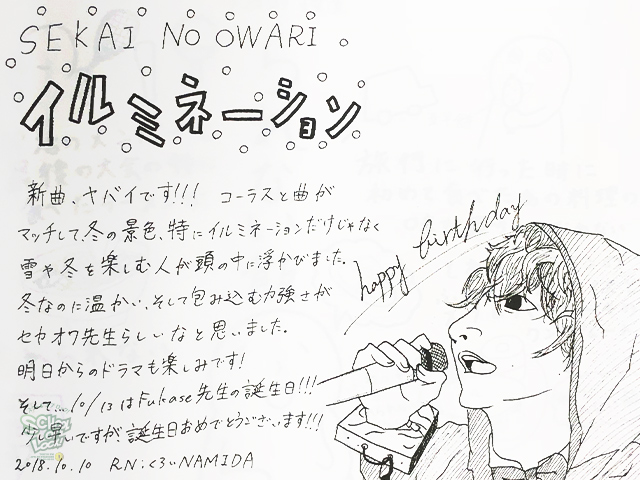 SEKAI NO OWARI
イルミネーション
新曲、ヤバイです!!! コーラスと曲が
マッチして、冬の景色、特にイルミネーションだけじゃなく
雪や冬を楽しむ人が頭の中に浮かびました。
冬なのに温かい、そして包み込む力強さが
セカオワ先生らしいなと思いました。
明日からのドラマも楽しみです!
そして…10/13はFukase先生の誕生日!!!
少し早いですが、誕生日おめでとうございます!!!
2018.10.10 RN:くろいNAMIDA
happy birthday